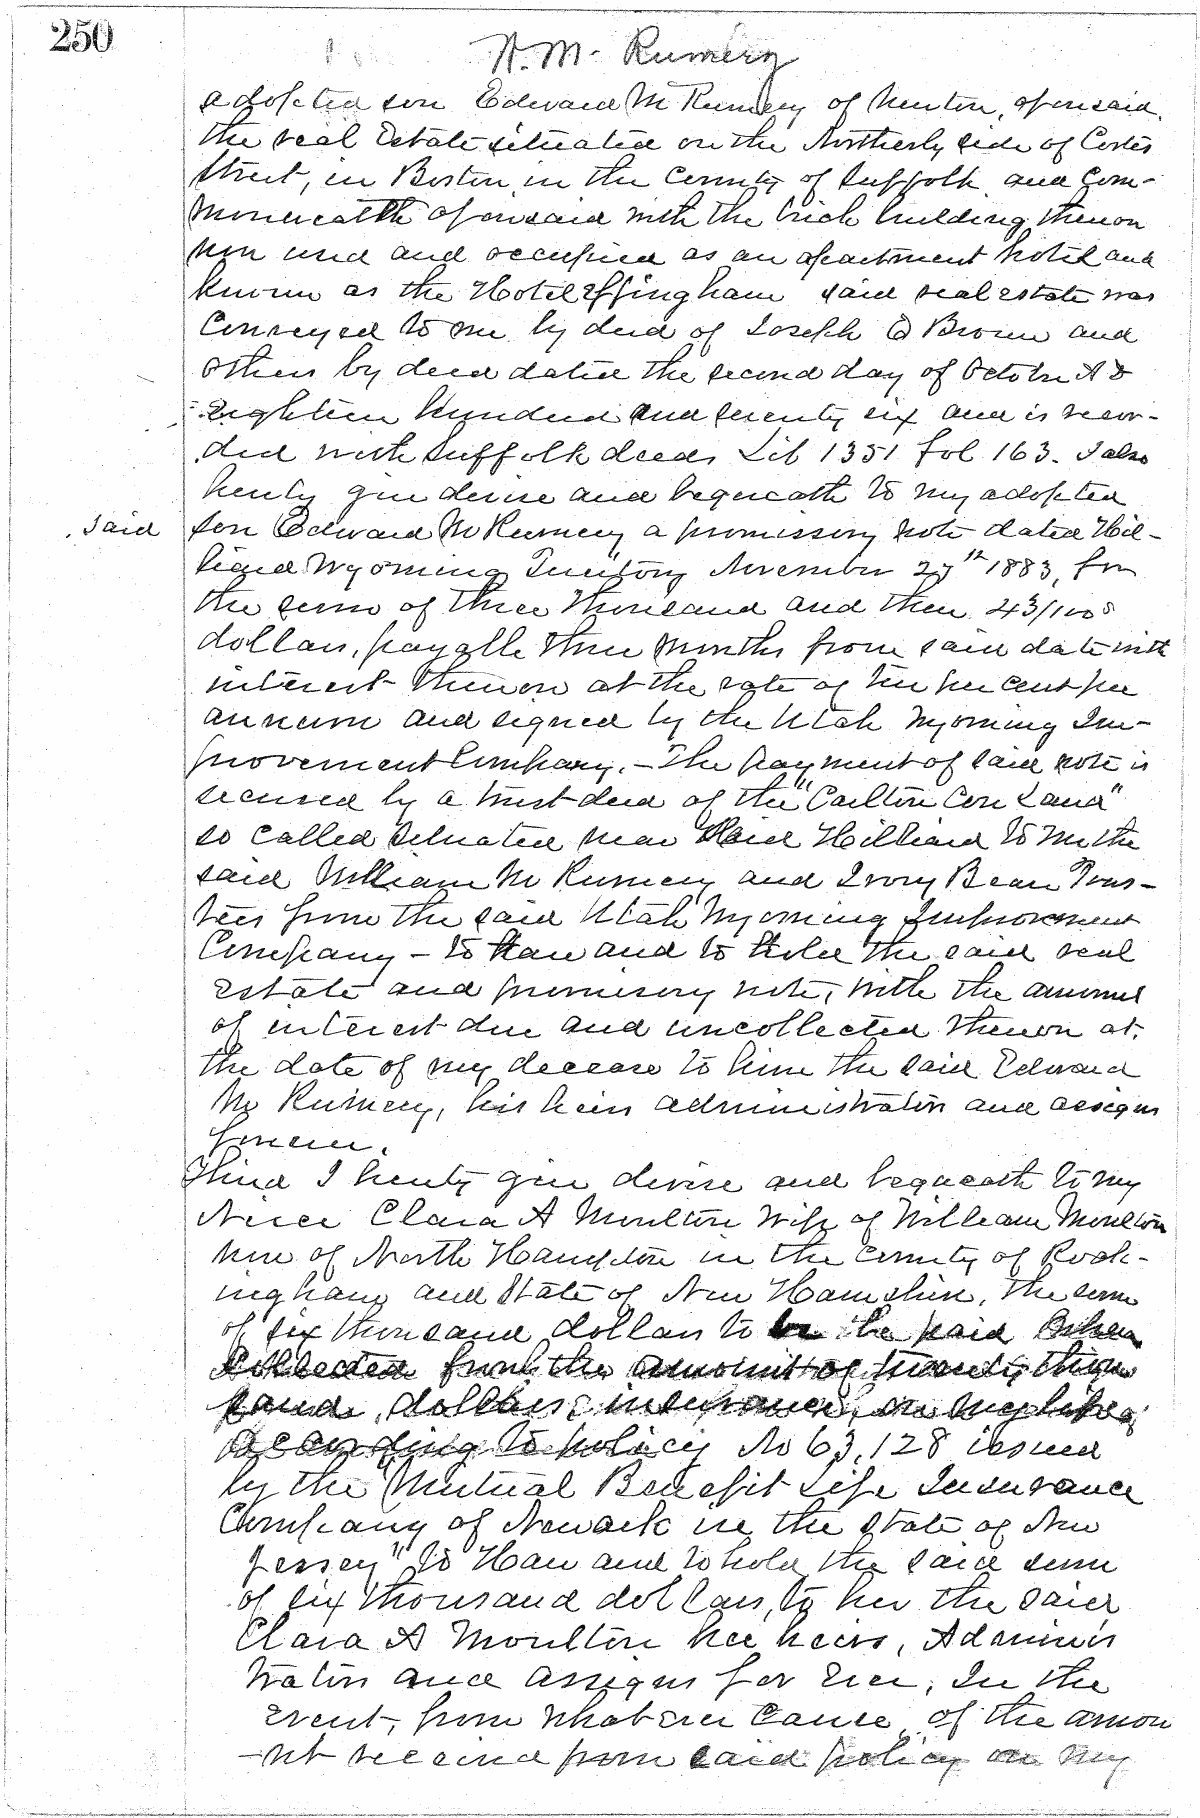 250
W. M. Rumery
adopted son Edward M Rumery of Newton, aforesaid.
the real Estate situated on the Northerly side of Cortes
Street, in Boston in the County of Suffolk and Com-
monwealth aforesaid with the brick building thereon
now used and occupied as an apartment hotel and
known as the Hotel Effingham said real estate was
Conveyed to me by deed of Joseph Q Brown and
others by deed dated the second day of October A D
Eighteen hundred and seventy six and is recor-
ded with Suffolk deeds Lib 1351 fol 163. I also
hereby give devise and bequeath to my adopted
said
son Edward M Rumery a promissory note dated Hil-
liard Wyoming Territory November 27th 1883, for
the sum of three thousand and three 43/100s
dollars, payable three months from said date with
interest thereon at the rate of ten per cent per
annum and signed by the Utah Wyoming Im-
provement Company. - The payment of said note is
secured by a trust deed of the "Carlton Con Land"
so called situated near said Hilliard to me the
said William M Rumery and Ivory Bean Trus-
tees from the said Utah Wyoming Improvement
Company - to Have and to Hold the said real
Estate and promissory note, with the amount
of interest due and uncollected thereon at
the date of my decease to him the said Edward
M Rumery, his heirs administrators and assigns
forever.
Third I hereby give devise and bequeath to my
Niece Clara A Moulton Wife of William Moulton
now of North Hampton in the County of Rock-
ingham and State of New Hampshire, the sum
of six thousand dollars to be the paid when
collected from the amount of twenty thou
sand dollars, insurance, on my life
according to policy No 63,128 issued
by the "Mutual Benefit Life Insurance
Company of Newark in the State of New
Jersey" to Have and to hold the said sum
of six thousand dollars, to her the said
Clara A Moulton her heirs, Adminis
trators and assigns for Ever, In the
Event, from whatever Cause, of the amou
-nt received from said policy on my